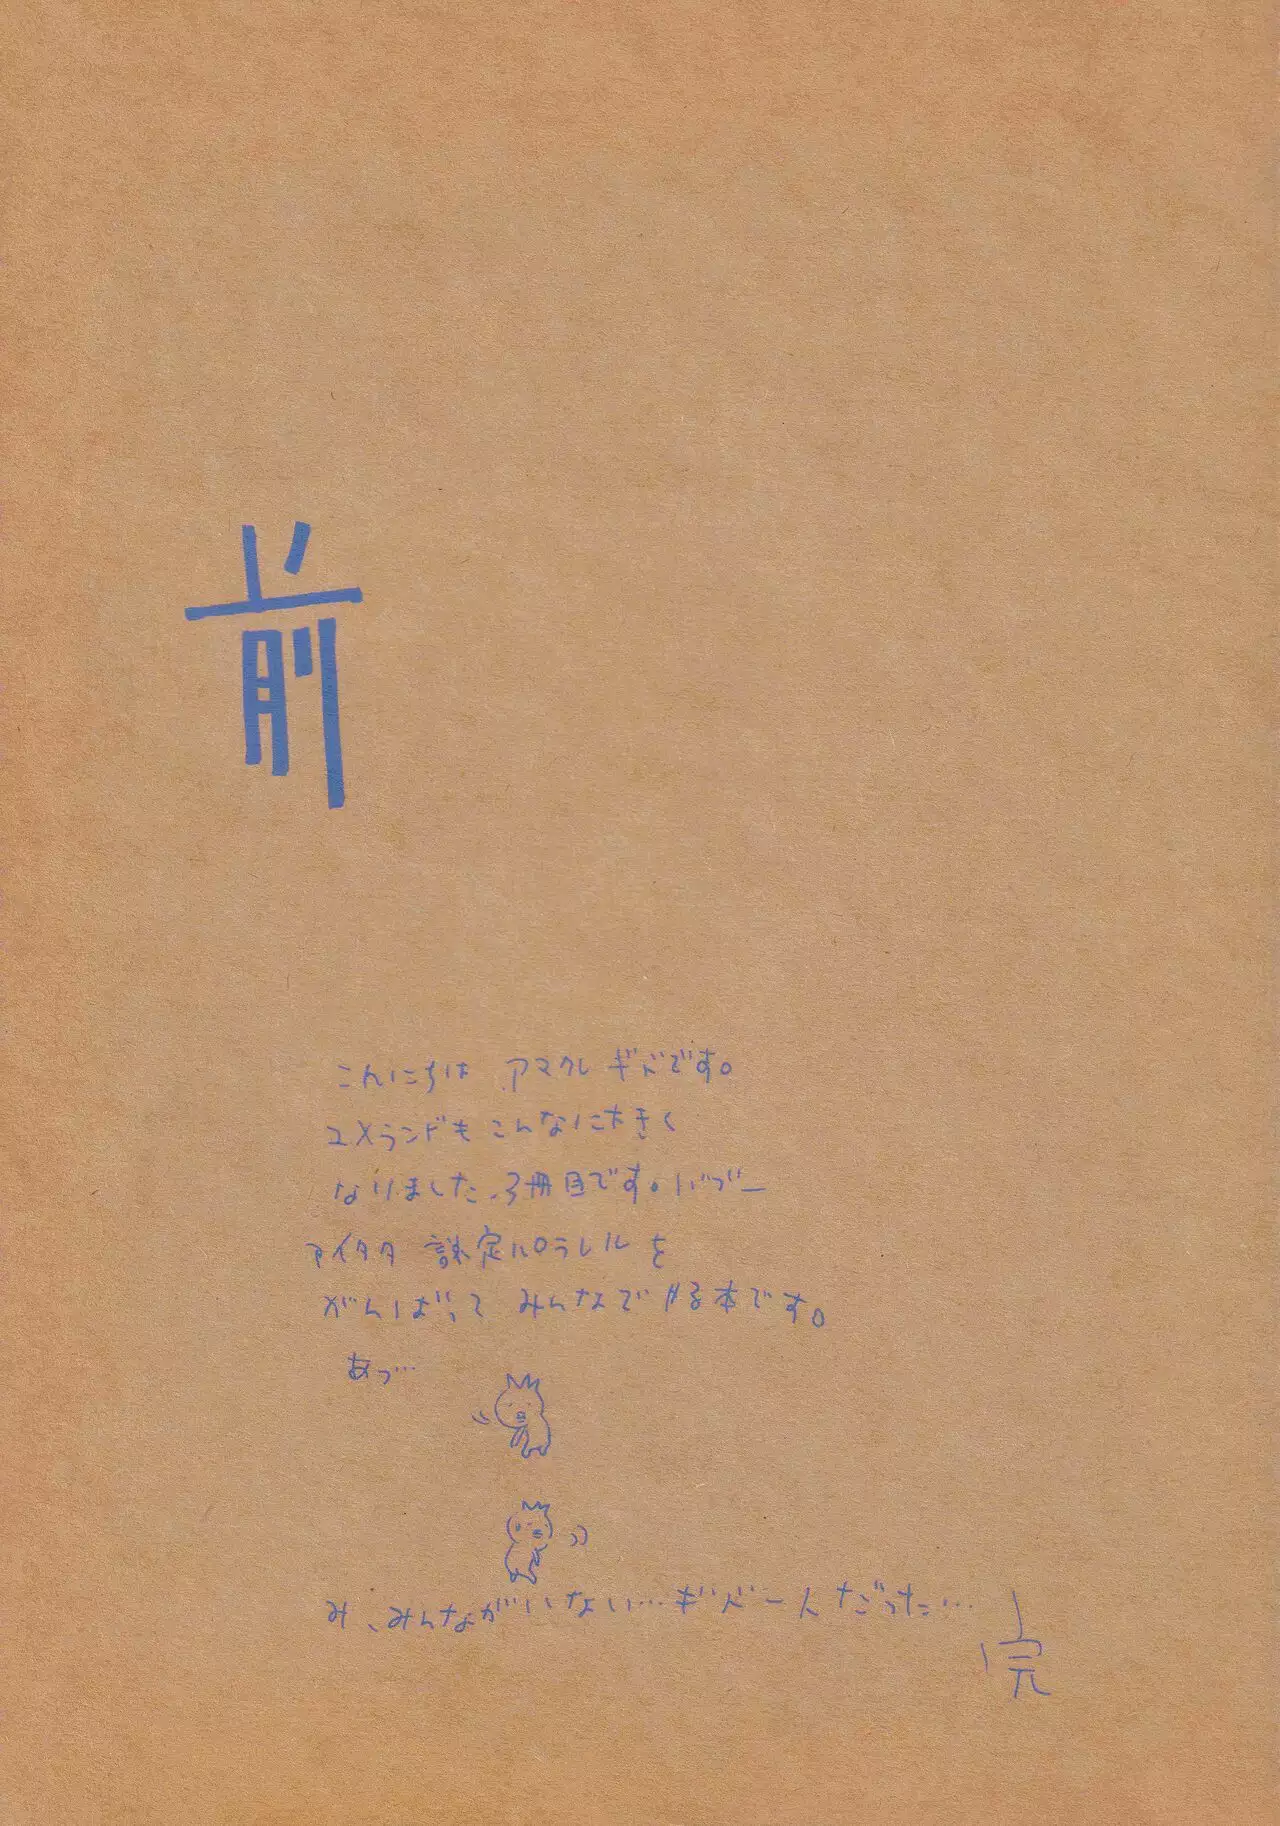 前
こんにちは アマクレ ギドです。
ユメランドも こんなに大きく
なりました。3冊目です。バブー
アイタタ 設定パラレルを
がんばって みんなで作る本です。
あっ…
み、みんながいない…ギド一人だった…
完